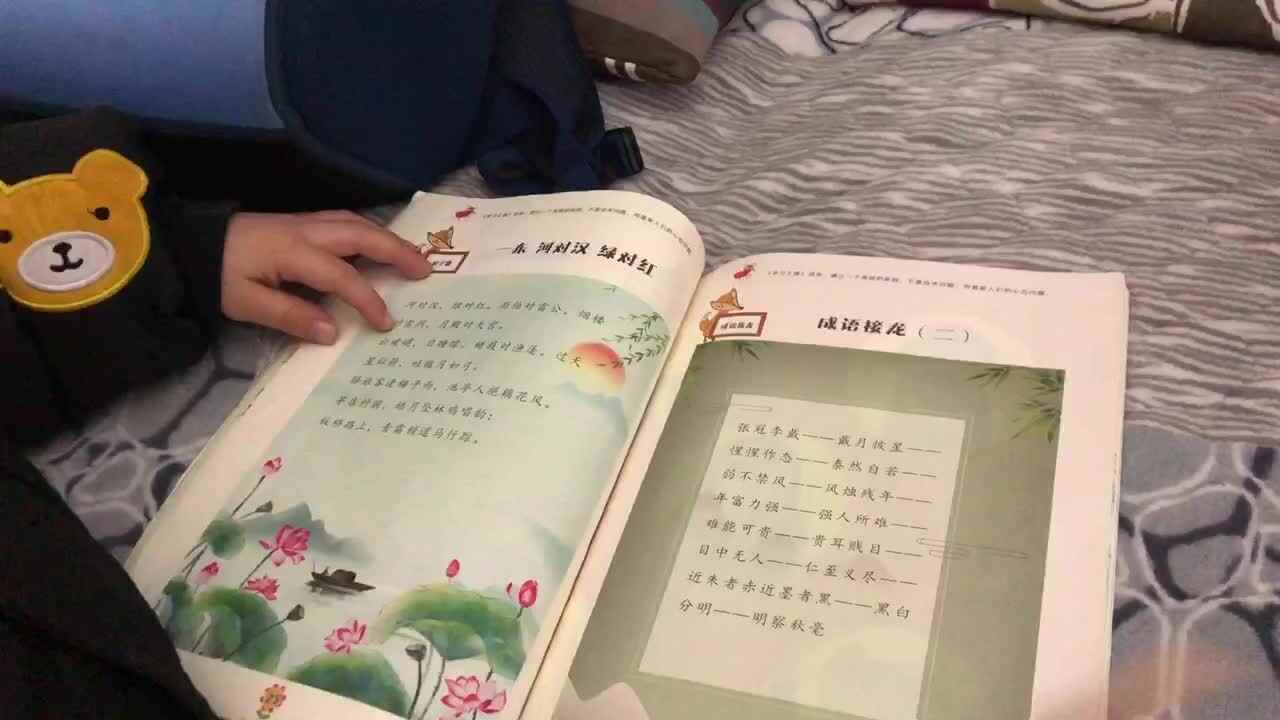 一东 河对汉 绿对红
河对汉，绿对红。雨伯对雷公。烟楼
对雪洞，月殿对天宫。
云叆叇，日曈曚。蜡屐对渔蓬。过天
星似箭，吐魄月如弓。
驿旅客逢梅子雨，池亭人挹藕花风。
茅店村前，皓月坠林鸡唱韵；
板桥路上，青霜锁道马行踪。
成语接龙
成语接龙（二）
张冠李戴——戴月披星——
惺惺作态——泰然自若——
弱不禁风——风烛残年——
年富力强——强人所难——
难能可贵——贵耳贱目——
目中无人——仁至义尽——
近朱者赤近墨者黑——黑白
分明——明察秋毫